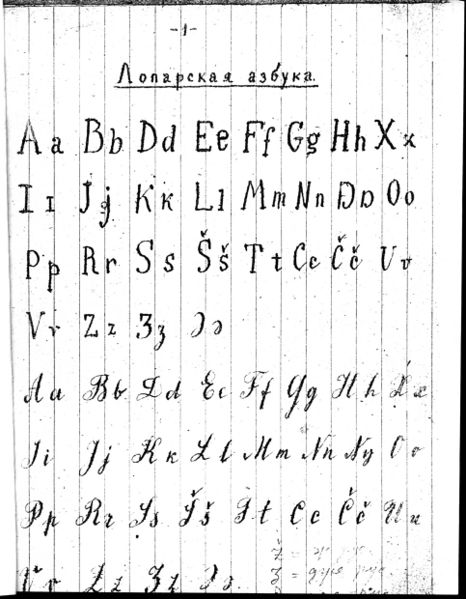 -1-
Лопарская азбука.
Aa Bb Dd Ee Ff Gg Hh Xx
Iı Jj Kĸ Ll Mm Nn Oo
Pp Rr Ss Šš Tt Cc Čč Uu
Vv Zz Ʒʒ Əə
Aa Bb Dd Ee Ff Gg Hh Xx
Ii Jj Kĸ Ll Mm Nn Oo
Pp Rr Ss Šš Tt Cc Čč Uu
Vv Zz Ʒʒ Əə